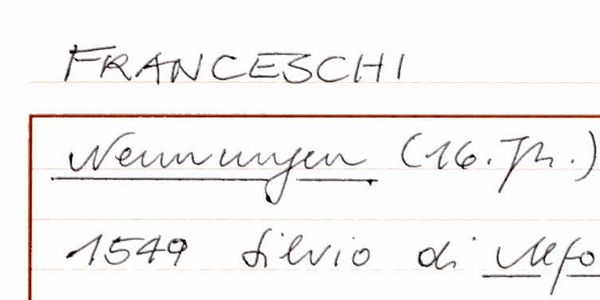 FRANCESCHI
Nennungen (16. Jh.)
1549 Silvio di